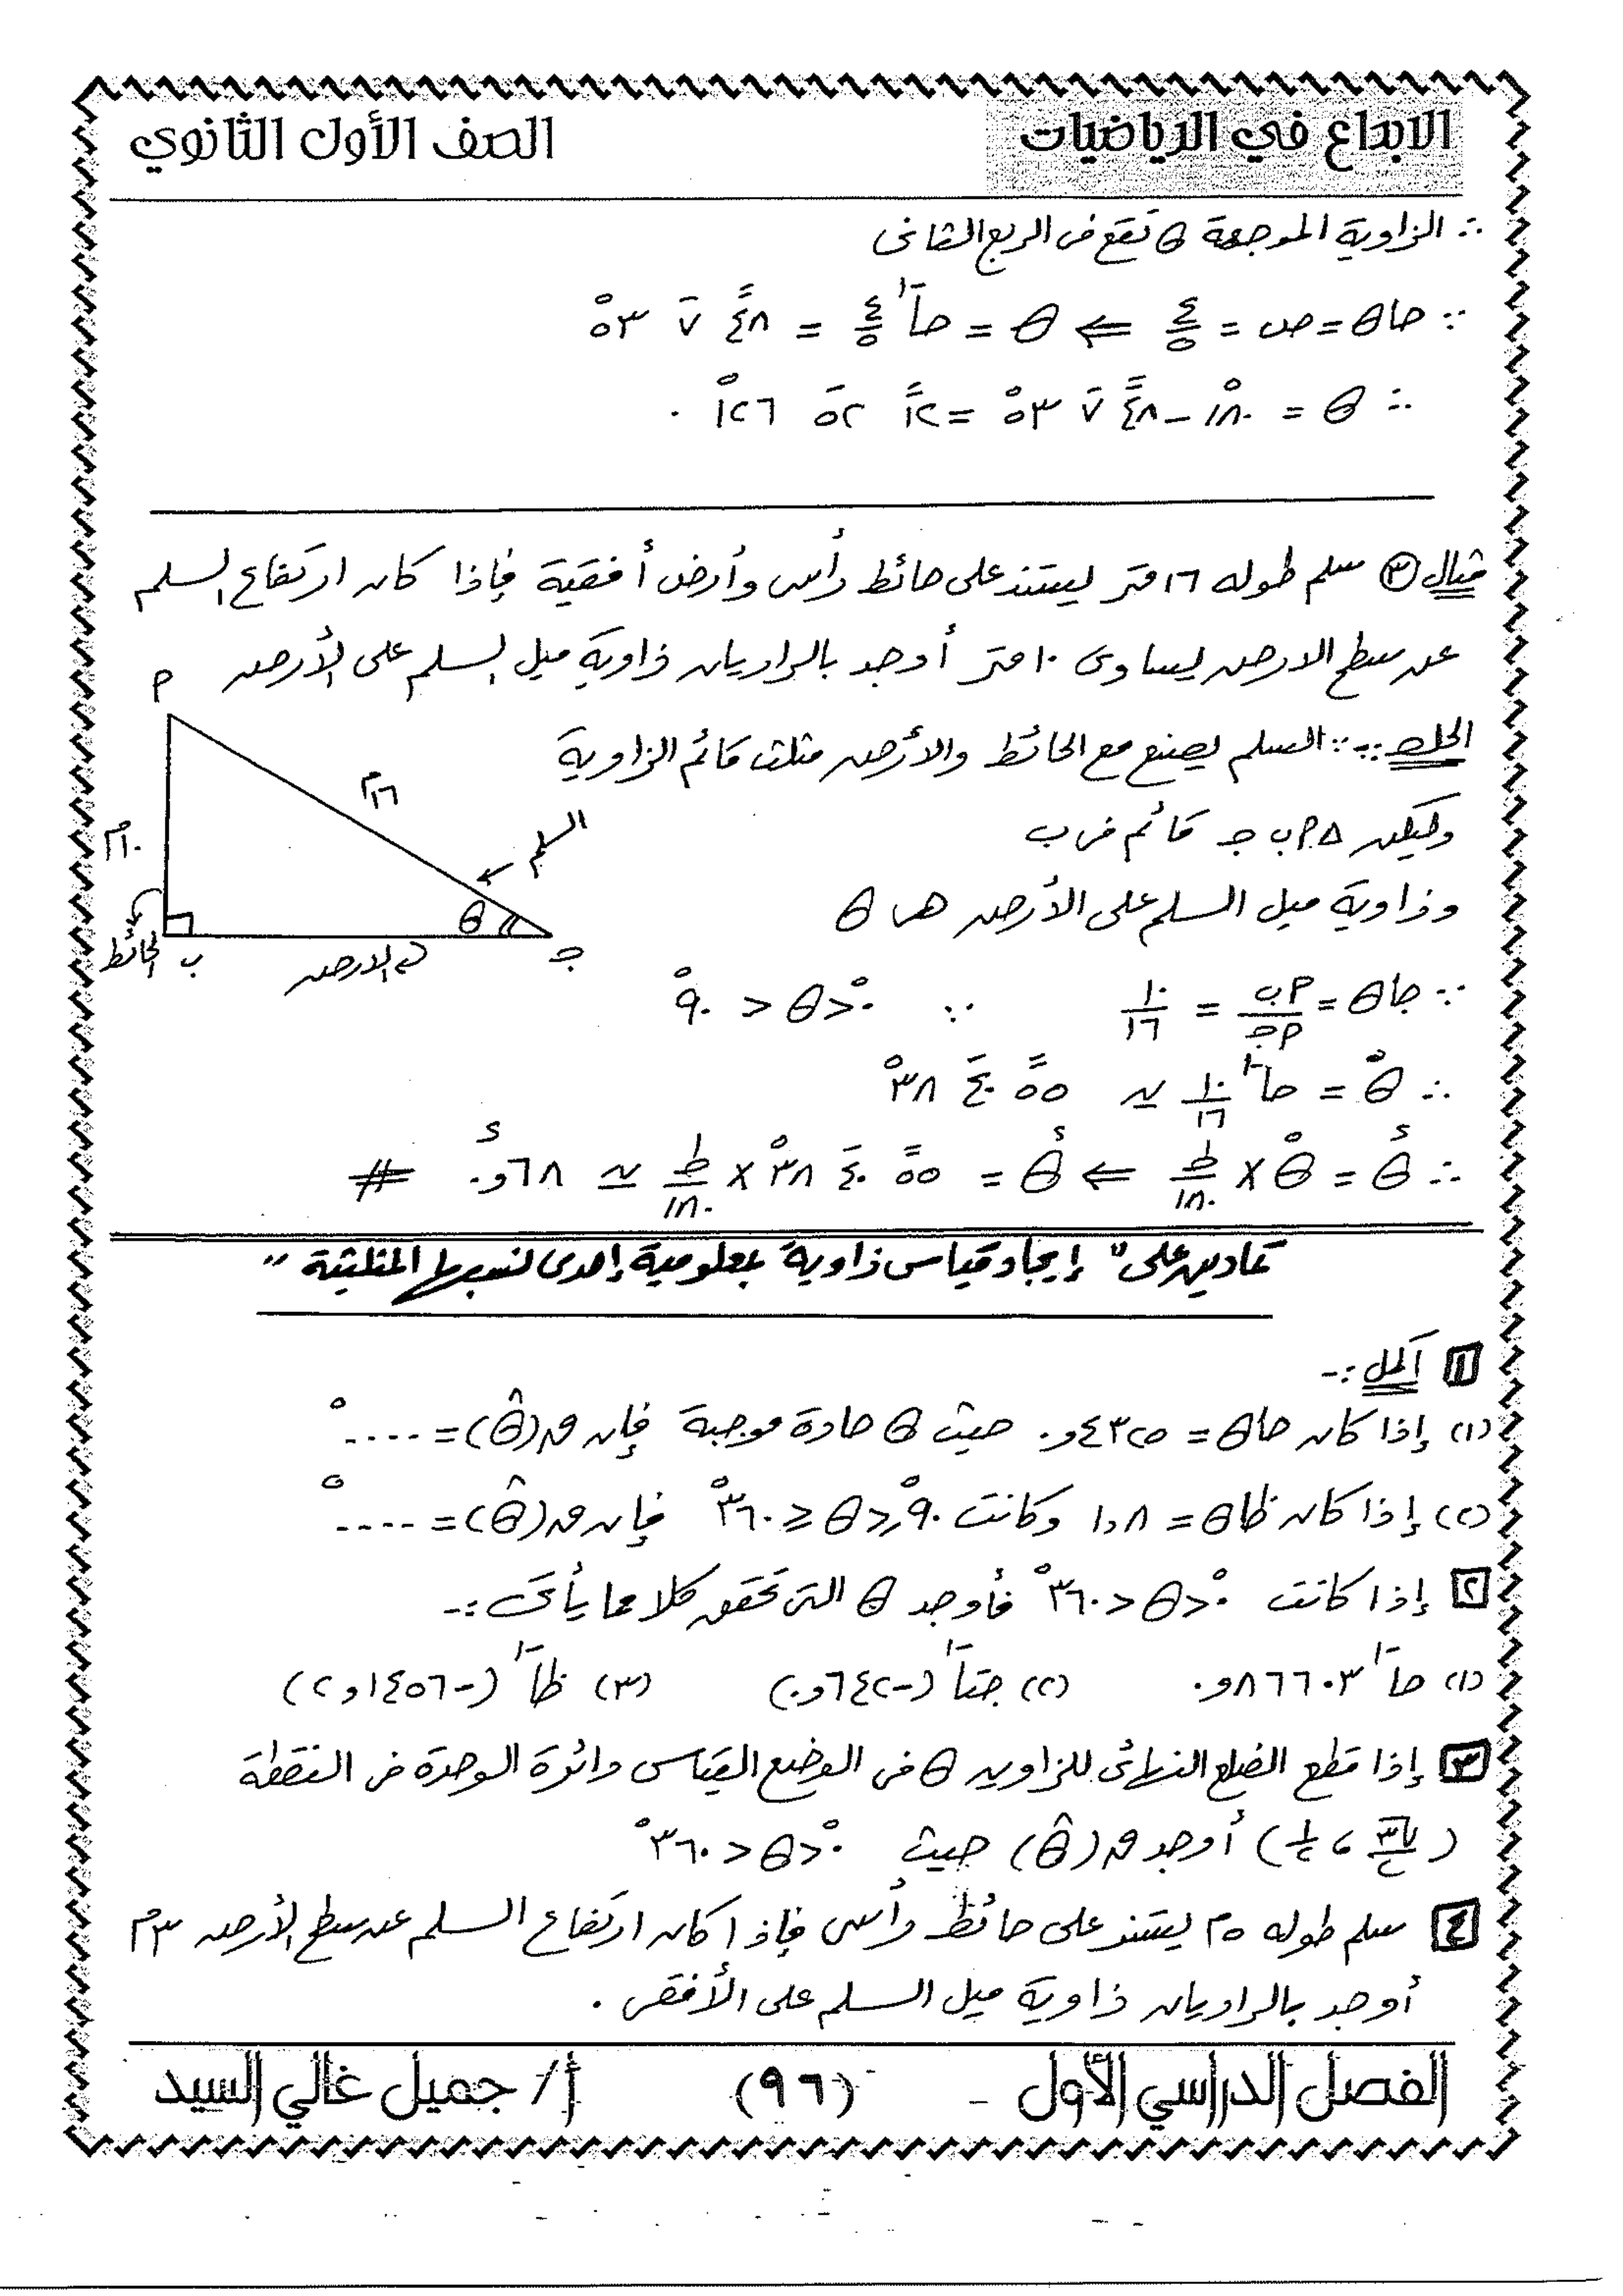 الابداع في الرياضيات
الصف الأول الثانوي
∴ الزاوية الموجهة θ تقع فى الربع الثانى
∵ حاθ = ص = ٤/٥ ⇐ θ = حا⁻¹ ٤/٥ = ٤٨ً ٧َ ٥٣°
∴ θ = ١٨٠° - ٤٨ً ٧َ ٥٣° = ١٢ً ٥٢َ ١٢٦° .
مثال ٣ سلم طوله ١٦ متر يستند على حائط رأسى وأرض أفقية فإذا كان ارتفاع السلم
عن سطح الارض يساوى ١٠ متر أوجد بالراديان زاوية ميل السلم على الأرض
الحل :- ∵ السلم يصنع مع الحائط والأرض مثلث قائم الزاوية
وليكن Δ أ ب جـ قائم فى ب
وزاوية ميل السلم على الأرض هى θ
أ
١٦م
السلم
١٠م
θ
الحائط
ب
الارض
جـ
∵ جاθ = أب/أجـ = ١٠/١٦ ∵ ٠° < θ < ٩٠°
∴ θ° = حا⁻¹ ١٠/١٦ ≃ ٥٥ً ٤٠َ ٣٨°
∴ θء = θ° × ط/١٨٠ ⇐ θء = ٥٥ً ٤٠َ ٣٨° × ط/١٨٠ ≃ ٠,٦٨ء #
تمارين على " إيجاد قياس زاوية بمعلومية إحدى نسبها المثلثية "
١ أكمل :-
(١) إذا كان حاθ = ٠,٤٣٢٥ حيث θ حادة موجبة فإن ق(θ̂) = ....°
(٢) إذا كان ظاθ = ١,٨ وكانت ٩٠° ≤ θ ≤ ٣٦٠° فإن ق(θ̂) = ....°
٢ إذا كانت ٠° < θ < ٣٦٠° فأوجد θ التى تحقق كلا مما يأتى :-
(١) حا⁻¹ ٠,٨٦٦٠٣ (٢) جتا⁻¹ (-٠,٦٤٢) (٣) ظا⁻¹ (-٢,١٤٥٦)
٣ إذا قطع الضلع النهائى للزاوية θ فى الوضع القياسى دائرة الوحدة فى النقطة
(√٣/٢ ، ١/٢) أوجد ق(θ̂) حيث ٠° < θ < ٣٦٠°
٤ سلم طوله ٥م يستند على حائط رأسى فإذا كان ارتفاع السلم عن سطح الأرض ٣م
أوجد بالراديان زاوية ميل السلم على الأفقى .
الفصل الدراسي الأول - (٩٦) أ/ جميل غالي السيد